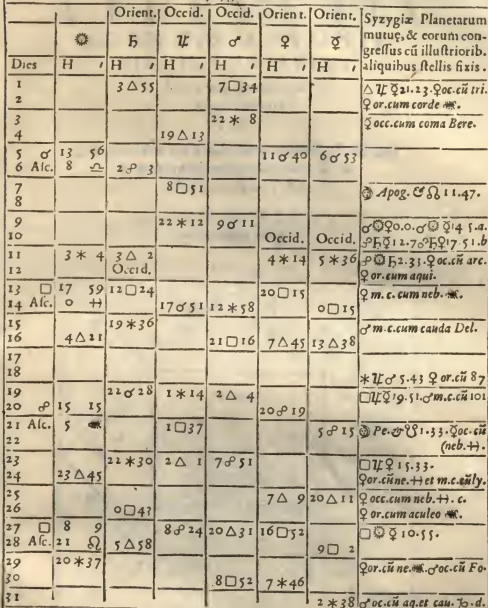 Orient. Occid. Occid. Orient. Orient. Syzygiæ Planetarum
mutuę, & eorum con-
☼ ♄ ♃ ♂ ♀ ☿ gressus cū illustriorib.
Dies H ′ H ′ H ′ H ′ H ′ H ′ aliquibus stellis fixis.
1 3△55 7□34 △♃☿21.23.♀oc.cū tri.
2 ♀or.cum corde
3 22✶ 8 ☿occ.cum coma Bere.
4 19△13
5 ☌ 13 56 11☌40 6☌53
6 Asc. 8 ♎ 2☍ 3
7 8□51 Apog. & ☊ 11.47.
8
9 22✶12 9☌11 ☌☼♀0.0.☌☼☿14 5.4.
10 Occid. Occid. ☍♄☿12.7☍♄♀17.51.b
11 3✶ 4 3△ 2 4✶14 5✶36 ☍☼♄2.33.♀oc.cū arc.
12 Occid. ♀or.cum aqui.
13 □ 17 59 12□24 20□15 ♀m.c.cum neb.
14 Asc. 0 ♓ 17☌51 12✶58 0□15
15 19✶36 ♂m.c.cum cauda Del.
16 4△21 21□16 7△45 13△38
17
18 ✶♃♂5.43 ♀or.cū 87
19 22☌28 1✶14 2△ 4 □♃☿19.51.♂m.c.cū 101
20 ☍ 15 15 20☍19
21 Asc. 5 1□37 5☍15 Pe.&☋1.33.☿oc.cū
22 (neb.♓.)
23 22✶30 2△ 1 7☍51 □♃♀15.33.
24 23△45 ♀or.cūne.♓et m.c.cūly.
25 7△ 9 20△11 ♀occ.cum neb.♓.c.
26 0□4? ♀or.cum aculeo
27 □ 8 9 8☍24 20△31 16□52 □☼☿10.55.
28 Asc. 21 ♌ 5△58 9□ 2
29 20✶37 ♀or.cū ne. ♂oc.cū Fo.
30 8□52 7✶46
31 2✶38 ♂oc.cū aq.et cau.♑.d.